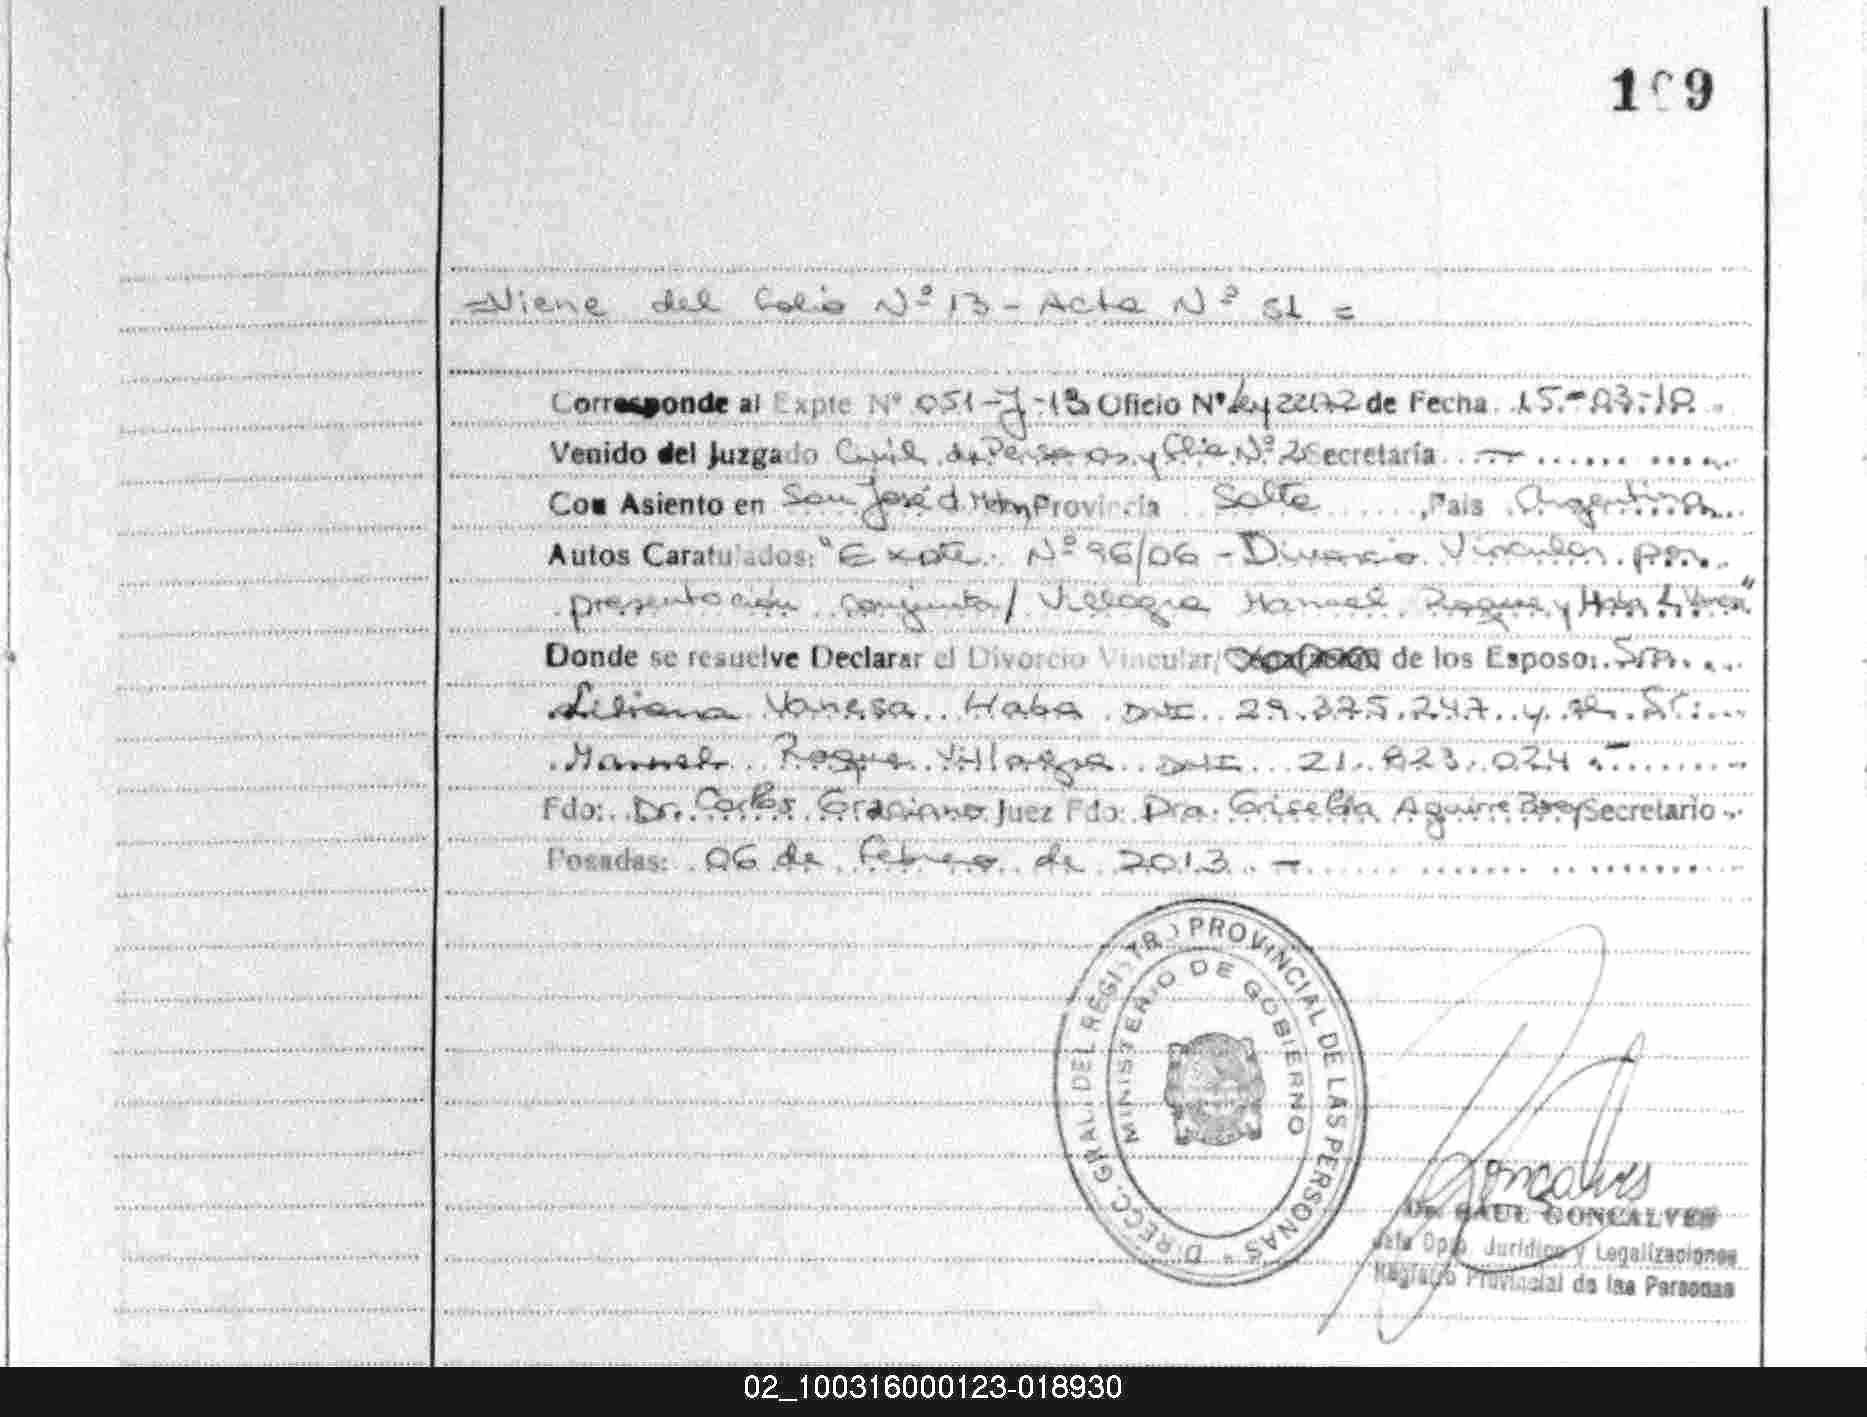 1 9
=Viene del Folio Nº 13 - Acta Nº 51 =
Corresponde al Expte Nº 051-J-13 Oficio Nº Ley 22172 de Fecha 15-03-10
Venido del Juzgado Civil de Personas y Flia. Nº 2 Secretaría —
Con Asiento en San José d. Metan Provincia Salta, País Argentina
Autos Caratulados: "Expte. Nº 96/06 - Divorcio Vincular por
presentación conjunta / Villagra Manuel Roque y
Donde se resuelve Declarar el Divorcio Vincular/ de los Esposos: Sra.
Liliana Vanesa Haba DNI 29.375.247 y el Sr.
Manuel Roque Villagra DNI 21.823.024 -
Fdo: Dr. Carlos Graciano Juez Fdo: Dra. Griselda Aguirre Secretario
Posadas: 06 de febrero de 2013 -
DIRECC. GRAL. DEL REGISTRO PROVINCIAL DE LAS PERSONAS
MINISTERIO DE GOBIERNO
Gonçalves
Dr. SAUL GONCALVES
Jefe Dpto. Jurídico y Legalizaciones
Registro Provincial de las Personas
02_100316000123-018930